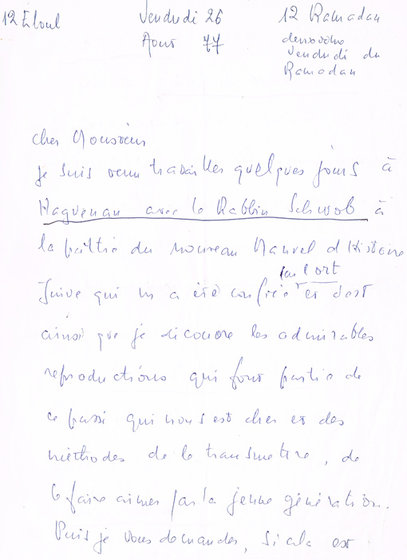 12 Eloul
Vendredi 26
Aout 77
12 Ramadan
deuxième
Vendredi du
Ramadan
cher Monsieur
je suis venu travailler quelques jours à
Haguenau avec le Rabbin Schwob à
la partie du nouveau Manuel d'Histoire
par l'ort
Juive qui m'a été confiée et c'est
ainsi que je découvre les admirables
reproductions qui font partie de
ce passé qui nous est cher et des
méthodes de le transmettre, de
le faire aimer par la jeune génération.
Puis je vous demander, si cela est